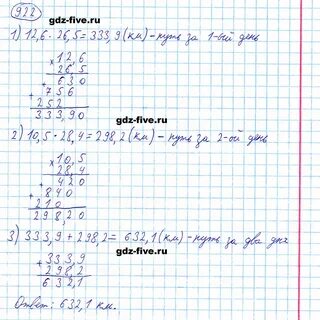 922
gdz-five.ru
1) 12,6 · 26,5 = 333,9 (км) – путь за 1-ый день
gdz-five.ru
× 12,6
26,5
630
+ 756
252
333,90
gdz-five.ru
2) 10,5 · 28,4 = 298,2 (км) – путь за 2-ой день
× 10,5
28,4
gdz-five.ru
+ 420
+ 840
210
298,20
3) 333,9 + 298,2 = 632,1 (км) – путь за два дня
gdz-five.ru
+ 333,9
298,2
632,1
Ответ: 632,1 км.
gdz-five.ru